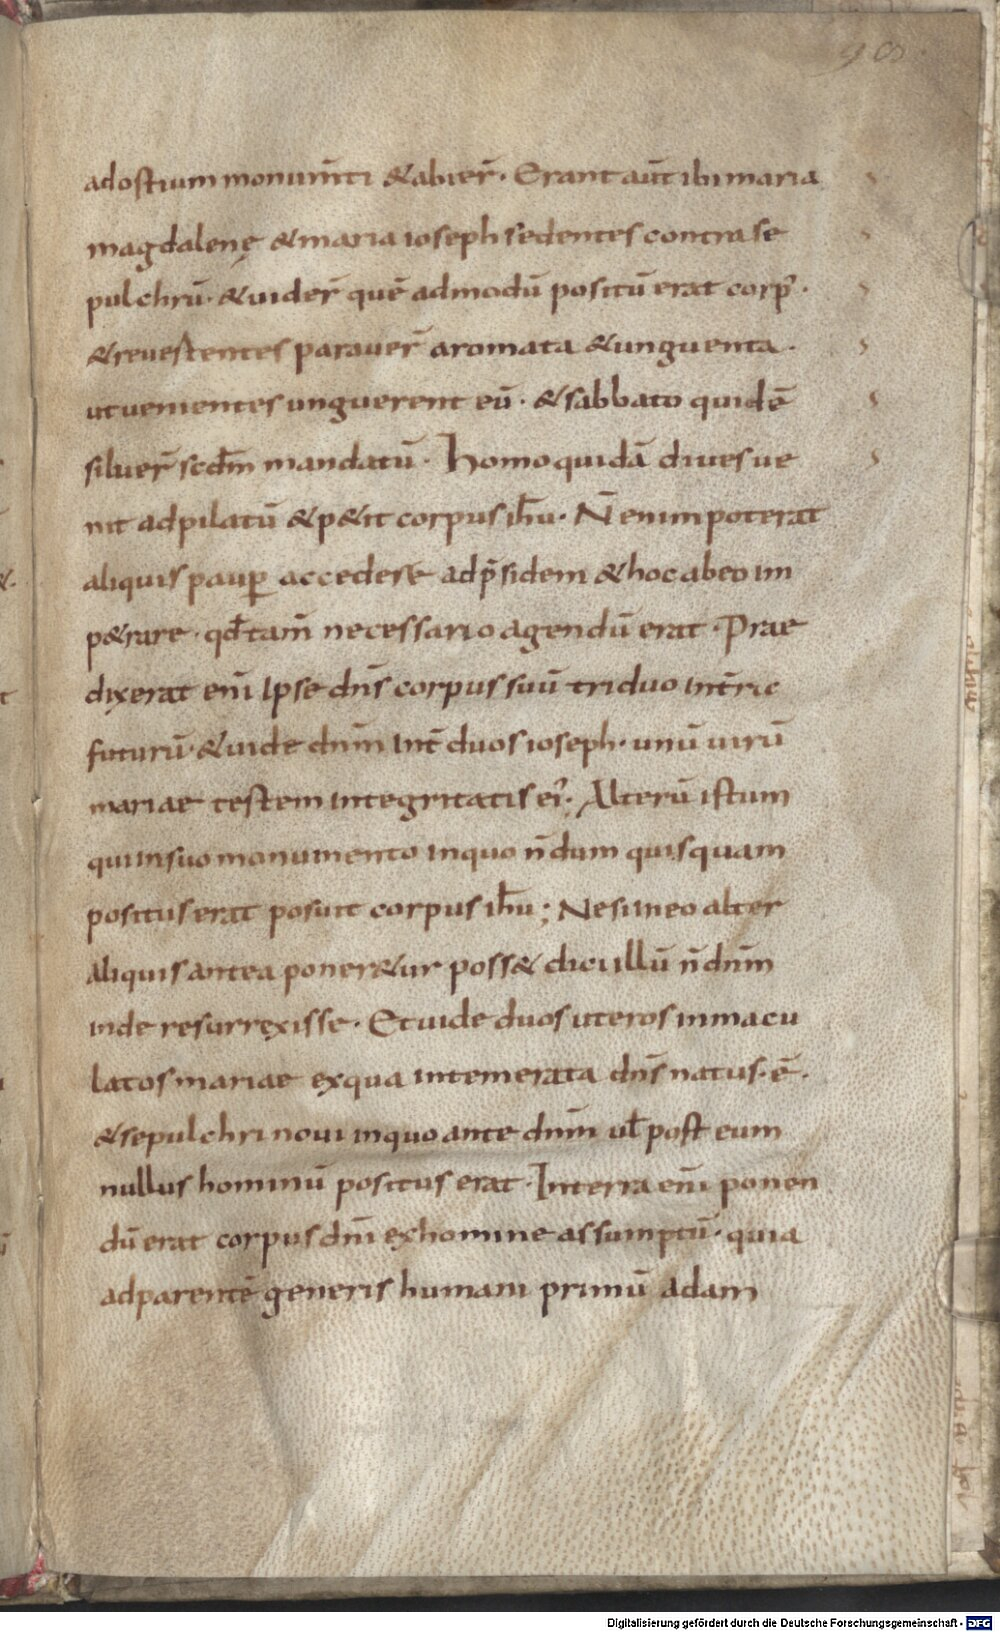 90.
ad ostium monum̄ti & abier̄. Erant aūt ibi maria
magdalenę & maria ioseph sedentes contra se
pulchrū. & uider̄ quē admodū positū erat corp᾽.
& reuestentes parauer̄ aromata & unguenta.
ut uenientes unguerent eū. & sabbato quidē
siluer̄ scd̄m mandatū. Homo quidā diues ue
nit ad pilatū & p&iit corpus ih̄u. N̄ enim poterat
aliquis paup̱ accedere ad p̄sidem & hoc ab eo im
p&rare. qd̄ tam̄ necessario agendū erat. Prae
dixerat eni̅ Ipse dn̄s corpus suū triduo int̄ric
futurū. & uide dn̄m int̄ duos ioseph. unū uirū
mariae testem integritatis ei᾽. Alterū istum
qui in suo monumento in quo n̄dum quisquam
positus erat posuit corpus ih̄u; Ne si in eo alter
aliquis antea poner&ur poss& dici illū n̄ dn̄m
inde resurrexisse. Et uide duos uteros inmacu
latos mariae ex qua intemerata dn̄s natus. ē.
& sepulchri noui in quo ante dn̄m ul̄ post eum
nullus hominū positus erat. In terra eni̅ ponen
dū erat corpus dn̄i ex homine assumptū. quia
ad parentē generis humani primū adam
Digitalisierung gefördert durch die Deutsche Forschungsgemeinschaft - DFG